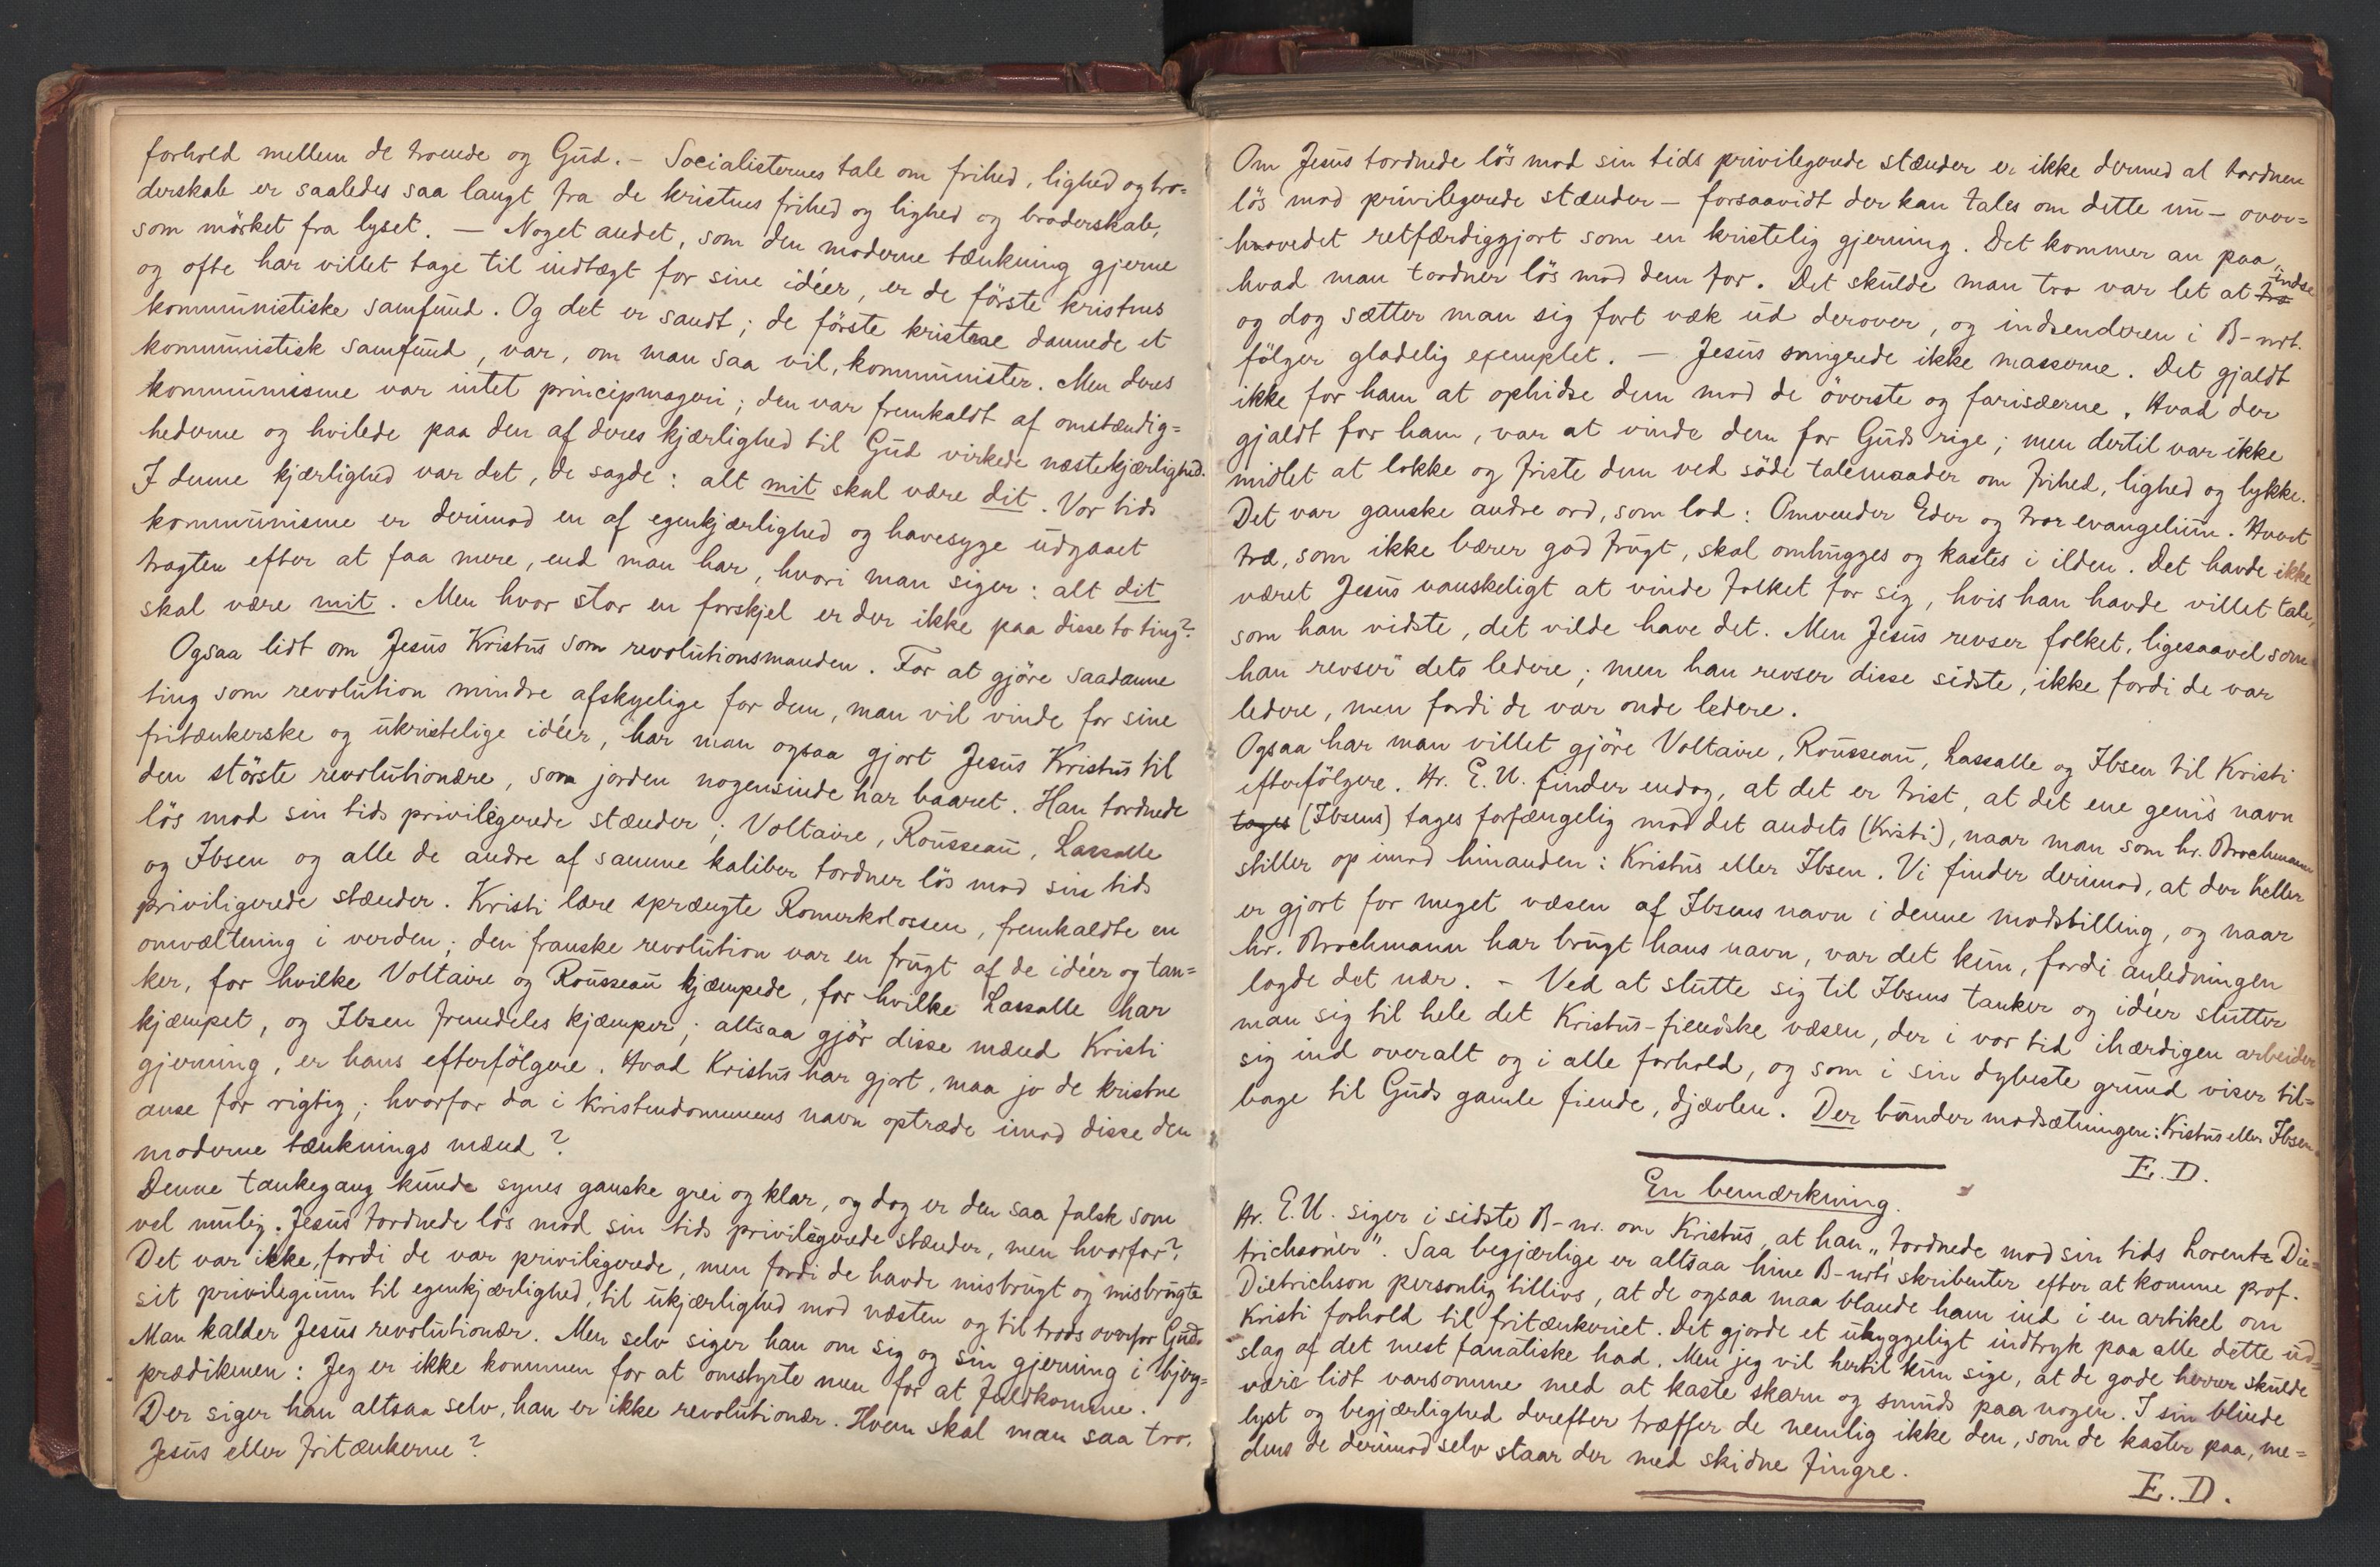 forhold mellem de troende og Gud. – Socialisternes tale om frihed, lighed og bro=
derskab er saaledes saa langt fra de kristnes frihed og lighed og broderskab,
som mörket fra lyset. — Noget andet, som den moderne tænkning gjerne
og ofte har villet tage til indtægt for sine idéer, er de förste kristnes
kommunistiske samfund. Og det er sandt; de förste kristne dannede et
kommunistisk samfund, var, om man saa vil, kommunister. Men deres
kommunisme var intet principmageri; den var fremkaldt af omstændig=
hederne og hvilede paa den af deres kjærlighed til Gud virkede næstekjærlighed.
I denne kjærlighed var det, de sagde: alt mit skal være dit. Vor tids
kommunisme er derimod en af egenkjærlighed og havesyge udgaaet
tragten efter at faa mere, end man har, hvori man siger: alt dit
skal være mit. Men hvor stor en forskjel er der ikke paa disse to ting?
Ogsaa lidt om Jesus Kristus som revolutionsmanden. For at gjöre saadanne
ting som revolution mindre afskyelige for dem, man vil vinde for sine
fritænkerske og ukristelige idéer, har man ogsaa gjort Jesus Kristus til
den störste revolutionære, som jorden nogensinde har baaret. Han tordnede
lös mod sin tids priviligerede stænder; Voltaire, Rousseau, Lassalle
og Ibsen og alle de andre af samme kaliber tordner lös mod sin tids
priviligerede stænder. Kristi lære sprængte Romerkolossen, fremkaldte en
omvæltning i verden; den franske revolution var en frugt af de idéer og tan=
ker, for hvilke Voltaire og Rousseau kjæmpede, for hvilke Lassalle har
kjæmpet, og Ibsen fremdeles kjæmper; altsaa gjör disse mænd Kristi
gjerning, er hans efterfölgere. Hvad Kristus har gjort, maa jo de kristne
anse for rigtig; hvorfor da i kristendommens navn optræde imod disse den
moderne tænknings mænd?
Denne tankegang kunde synes ganske grei og klar, og dog er den saa falsk som
vel mulig. Jesus tordnede lös mod sin tids priviligerede stænder, men hvorfor?
Det var ikke, fordi de var priviligerede, men fordi de havde misbrugt og misbrugte
sit privilegium til egenkjærlighed, til ukjærlighed mod næsten og til trods overfor Gud.
Man kalder Jesus revolutionær. Men selv siger han om sig og sin gjerning i bjerg=
prædikenen: Jeg er ikke kommen for at omstyrte men for at fuldkomme.
Der siger han altsaa selv, han er ikke revolutionær. Hvem skal man saa tro,
Jesus eller fritænkerne?
Om Jesus tordnede lös mod sin tids privilegerede stænder er ikke dermed at tordnen
lös mod privilegerede stænder – forsaavidt der kan tales om dette nu – over=
hovedet retfærdiggjort som en kristelig gjerning. Det kommer an paa,
hvad man tordner lös mod dem for. Det skulde man tro var let at tro indse
og dog sætter man sig fort væk ud derover, og indsenderen i B-nrt.
fölger gladelig exemplet. — Jesus smigrede ikke masserne. Det gjaldt
ikke for ham at ophidse dem mod de överste og farisæerne. Hvad der
gjaldt for ham, var at vinde dem for Guds rige; men dertil var ikke
midlet at lokke og friste dem ved söde talemaader om frihed, lighed og lykke.
Det var ganske andre ord, som lod: Omvender Eder og tror evangelium. Hvert
træ, som ikke bærer god frugt, skal omhugges og kastes i ilden. Det havde ikke
været Jesus vanskeligt at vinde folket for sig, hvis han havde villet tale,
som han vidste, det vilde have det. Men Jesus revser folket, ligesaavel som
han revser dets ledere; men han revser disse sidste, ikke fordi de var
ledere, men fordi de var onde ledere.
Ogsaa har man villet gjöre Voltaire, Rousseau, Lassalle og Ibsen til Kristi
efterfölgere. Hr. E. U. finder endog, at det er trist, at det ene genis navn
tages (Ibsens) tages forfængelig mod det andets (Kristi), naar man som hr. Brochmann
stiller op imod hinanden: Kristus eller Ibsen. Vi finder derimod, at der heller
er gjort for meget væsen af Ibsens navn i denne modstilling, og naar
hr. Brochmann har brugt hans navn, var det kun, fordi anledningen
lagde det nær. – Ved at slutte sig til Ibsens tanker og idéer slutter
man sig til hele det Kristus-fiendske væsen, der i vor tid ihærdigen arbeider
sig ind overalt og i alle forhold, og som i sin dybeste grund viser til=
bage til Guds gamle fiende, djævlen. Der bunder modsætningen: Kristus eller Ibsen.
E. D.
En bemærkning.
Hr. E. U. siger i sidste B-nr. om Kristus, at han „tordnede mod sin tids Lorentz Die=
trichson'er". Saa begjærlige er altsaa hine B-nrts skribenter efter at komme prof.
Dietrichson personlig tillivs, at de ogsaa maa blande ham ind i en artikel om
Kristi forhold til fritænkeriet. Det gjorde et uhyggeligt indtryk paa alle dette ud=
slag af det mest fanatiske had. Men jeg vil hertil kun sige, at de gode herrer skulde
være lidt varsomme med at kaste skarn og smuds paa nogen. I sin blinde
lyst og begjærlighed derefter træffer de nemlig ikke den, som de kaster paa, me=
dens de derimod selv staar der med skidne fingre.
E. D.